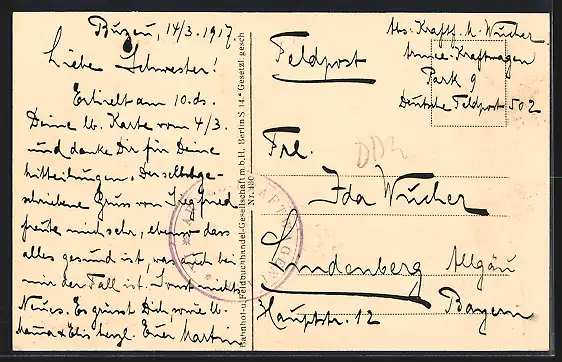 Buzeu, 14/3. 1917.
Liebe Schwester!
Erhielt am 10. ds.
Deine lb. Karte vom 4/3.
und danke Dir für Deine
Mitteilungen. Der selbstge-
schriebene Gruss von Siegfried
freute mich sehr, ebenso dass
alles gesund ist, was auch bei
mir der Fall ist. Sonst nichts
Neues. Es grüsst Dich, sowie lb.
Mama & Elis herzl. Euer Martin
Bahnhof- u. Feldbuchhandel-Gesellschaft m.b.H. Berlin S 14.* Gesetzl. gesch.
Nr. 180
Feldpost
Abs. Kraftf. M. Wucher
Armee-Kraftwagen
Park 9
Deutsche Feldpost 502
Frl.
Ida Wucher
Lindenberg Allgäu
Bayern
Hauptstr. 12